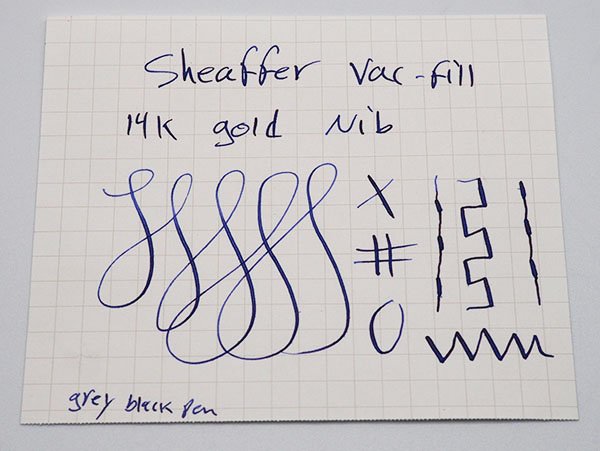 Sheaffer Vac-fill
14K gold Nib
grey black pen